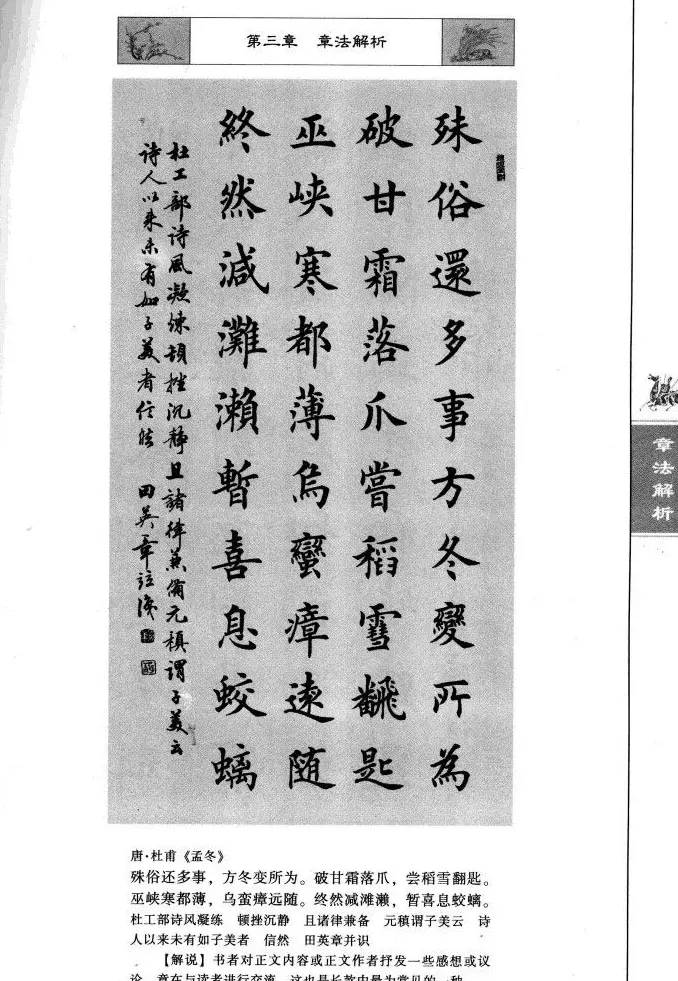 第三章 章法解析
殊俗還多事方冬變所為
破甘霜落爪嘗稻雪飜匙
巫峡寒都薄烏蠻瘴遠随
終然減灘瀨暫喜息蛟螭
杜工部诗風凝练頓挫沉静且諸律兼備元稹謂子美云
诗人以来未有如子美者信然 田英章并识
章法解析
唐·杜甫《孟冬》
殊俗还多事，方冬变所为。破甘霜落爪，尝稻雪翻匙。
巫峡寒都薄，乌蛮瘴远随。终然减滩濑，暂喜息蛟螭。
杜工部诗风凝练 顿挫沉静 且诸律兼备 元稹谓子美云 诗
人以来未有如子美者 信然 田英章并识
【解说】书者对正文内容或正文作者抒发一些感想或议